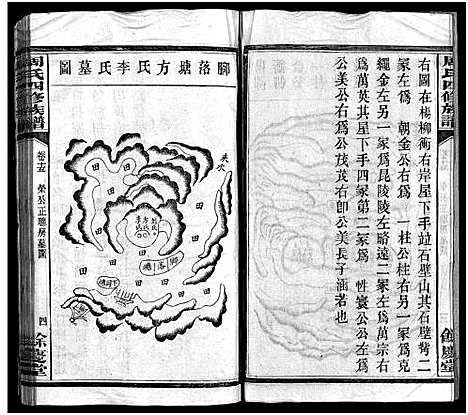 周氏四修族譜
右圖在楊柳衝右岸屋下手竝石壁山其石壁背二
家左爲　朝金公右爲　一柱公柱右另一家爲克
繩金左另一家爲昆陵陵左略遠二家左爲萬宗右
爲萬英其星下手四家第二家爲　性寰公右爲
公美公右爲公茂茂右卽公美長子涵若也
餘慶堂
腳落塘方氏李氏墓圖
田
田
田
田
田
田
田
田
周氏四修族譜
卷十五
榮公正聰房墓圖
四
餘慶堂